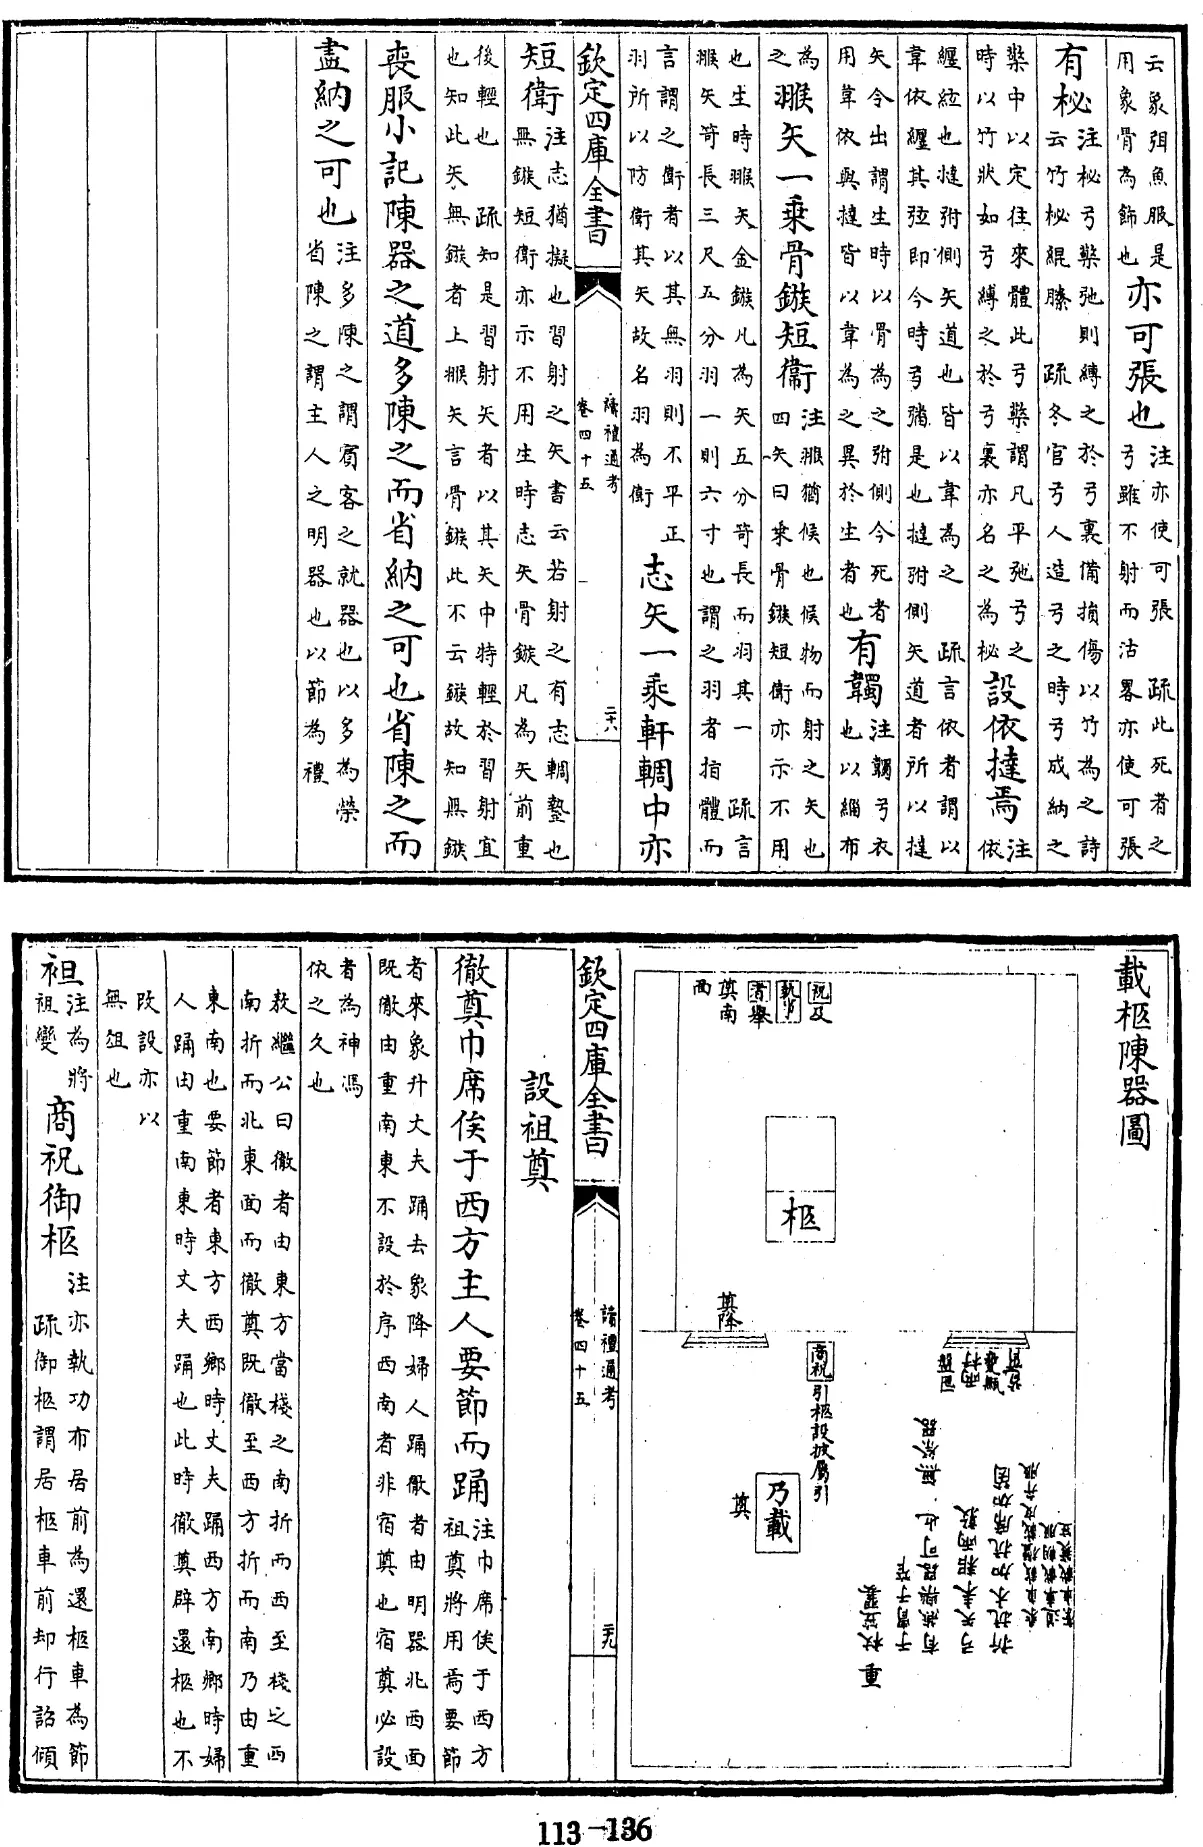 云象弭魚服是
用象骨為飾也
亦可張也
注亦使可張　疏此死者之
弓雖不射而沽畧亦使可張
有柲
注柲弓檠弛則縛之於弓裏備損傷以竹為之詩
云竹柲緄縢　疏冬官弓人造弓之時弓成納之
檠中以定往來體此弓檠謂凡平弛弓之
時以竹狀如弓縛之於弓裏亦名之為柲
設依撻焉
注
依
纏絃也撻弣側矢道也皆以韋為之　疏言依者謂以
韋依纏其弦即今時弓是也撻弣側矢道者所以撻
矢令出謂生時以骨為之弣側今死者
用韋依與撻皆以韋為之異於生者也
有韣
注韣弓衣
也以緇布
為
之
翭矢一乘骨鏃短衞
注翭猶候也候物而射之矢也
四矢曰乘骨鏃短衞亦示不用
也生時翭矢金鏃凡為矢五分笴長而羽其一　疏言
翭矢笴長三尺五分羽一則六寸也謂之羽者指體而
言謂之衞者以其無羽則不平正
羽所以防衞其矢故名羽為衞
志矢一乘軒輖中亦
欽定四庫全書
讀禮通考
卷四十五
二十八
短衞
注志猶擬也習射之矢書云若射之有志輖墊也
無鏃短衞亦示不用生時志矢骨鏃凡為矢前重
後輕也　疏知是習射矢者以其矢中特輕於習射宜
也知此矢無鏃者上翭矢言骨鏃此不云鏃故知無鏃
喪服小記陳器之道多陳之而省納之可也省陳之而
盡納之可也
注多陳之謂賓客之就器也以多為榮
省陳之謂主人之明器也以節為禮
載柩陳器圖
祝及
執事
舉
奠南
西
柩
奠降
商祝
引柩設披屬引
乃載
奠
欽定四庫全書
讀禮通考
卷四十五
二十九
設祖奠
徹奠巾席俟于西方主人要節而踊
注巾席俟于西方
祖奠將用焉要節
者來象升丈夫踊去象降婦人踊徹者由明器北西面
既徹由重南東不設於序西南者非宿奠也宿奠必設
者為神馮
依之久也
敖繼公曰徹者由東方當棧之南折而西至棧之西
南折而北東面而徹奠既徹至西方折而南乃由重
東南也要節者東方西鄉時丈夫踊西方南鄉時婦
人踊由重南東時丈夫踊也此時徹奠辟還柩也不
改設亦以
無俎也
袒
注為將
祖變
商祝御柩
注亦執功布居前為還柩車為節
疏御柩謂居柩車前却行詔傾
113-136